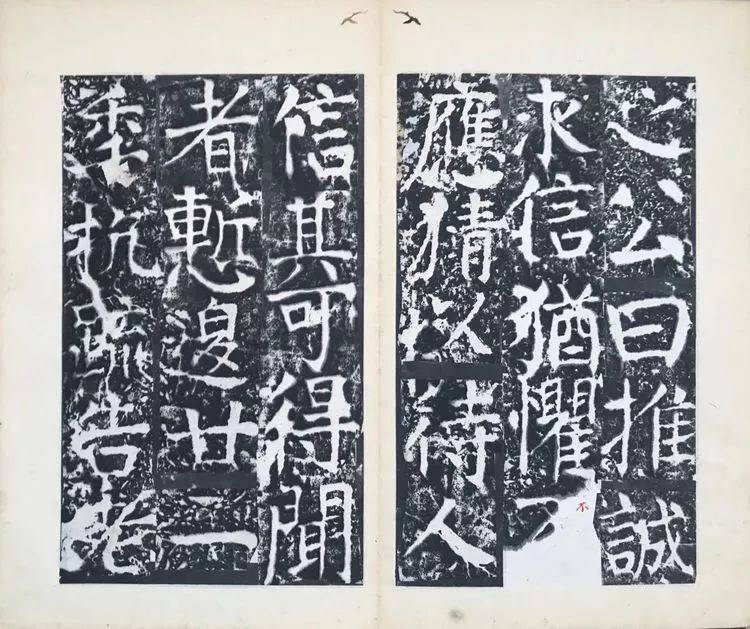 之公曰推誠
求信猶懼不
應猜以待人
信其可得聞
者慙退廿一
年抗疏告老